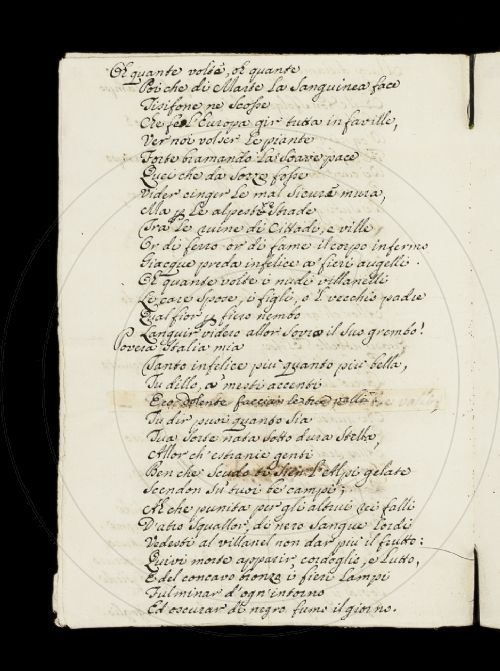 Oh quante volte, oh quante
Poi che di Marte la sanguinea face
Tisifone ne scosse
Che fe l'Europa gir tutta in faville,
Ver noi volser le piante
Forte bramando la soave pace
Quei che da sozze fosse
Vider cinger le mal sicure mura,
Ma p le alpestre strade
Tra le ruine di Cittadi, e ville,
Or di ferro or di fame il corpo infermo
Giacque preda infelice a' fieri augelli.
Oh quante volte i nudi villanelli
Le care spose, i figli, o 'l vecchio padre
Qual fior, p fiero nembo
Languir videro allor sovra il suo grembo!
Povera Italia mia
Tanto infelice più quanto più bella,
Tu dillo, a mesti accenti
Eco dolente faccian le tue valli.
Tu dir puoi quanto sia
Tua sorte nata sotto dura stella,
Allor ch' estranie genti
Ben che scudo ti sien l'Alpi gelate
Scendon su' tuoi be' campi;
Ah che punita per gli altrui rei falli
D'atro squallor, di nero sangue lordi
Vedesti al villanel non dar più il frutto:
Quivi morte apparir, cordoglio, e lutto,
E del concavo bronzo i fieri lampi
Fulminar d'ogn'intorno
Ed oscurar di negro fumo il giorno.